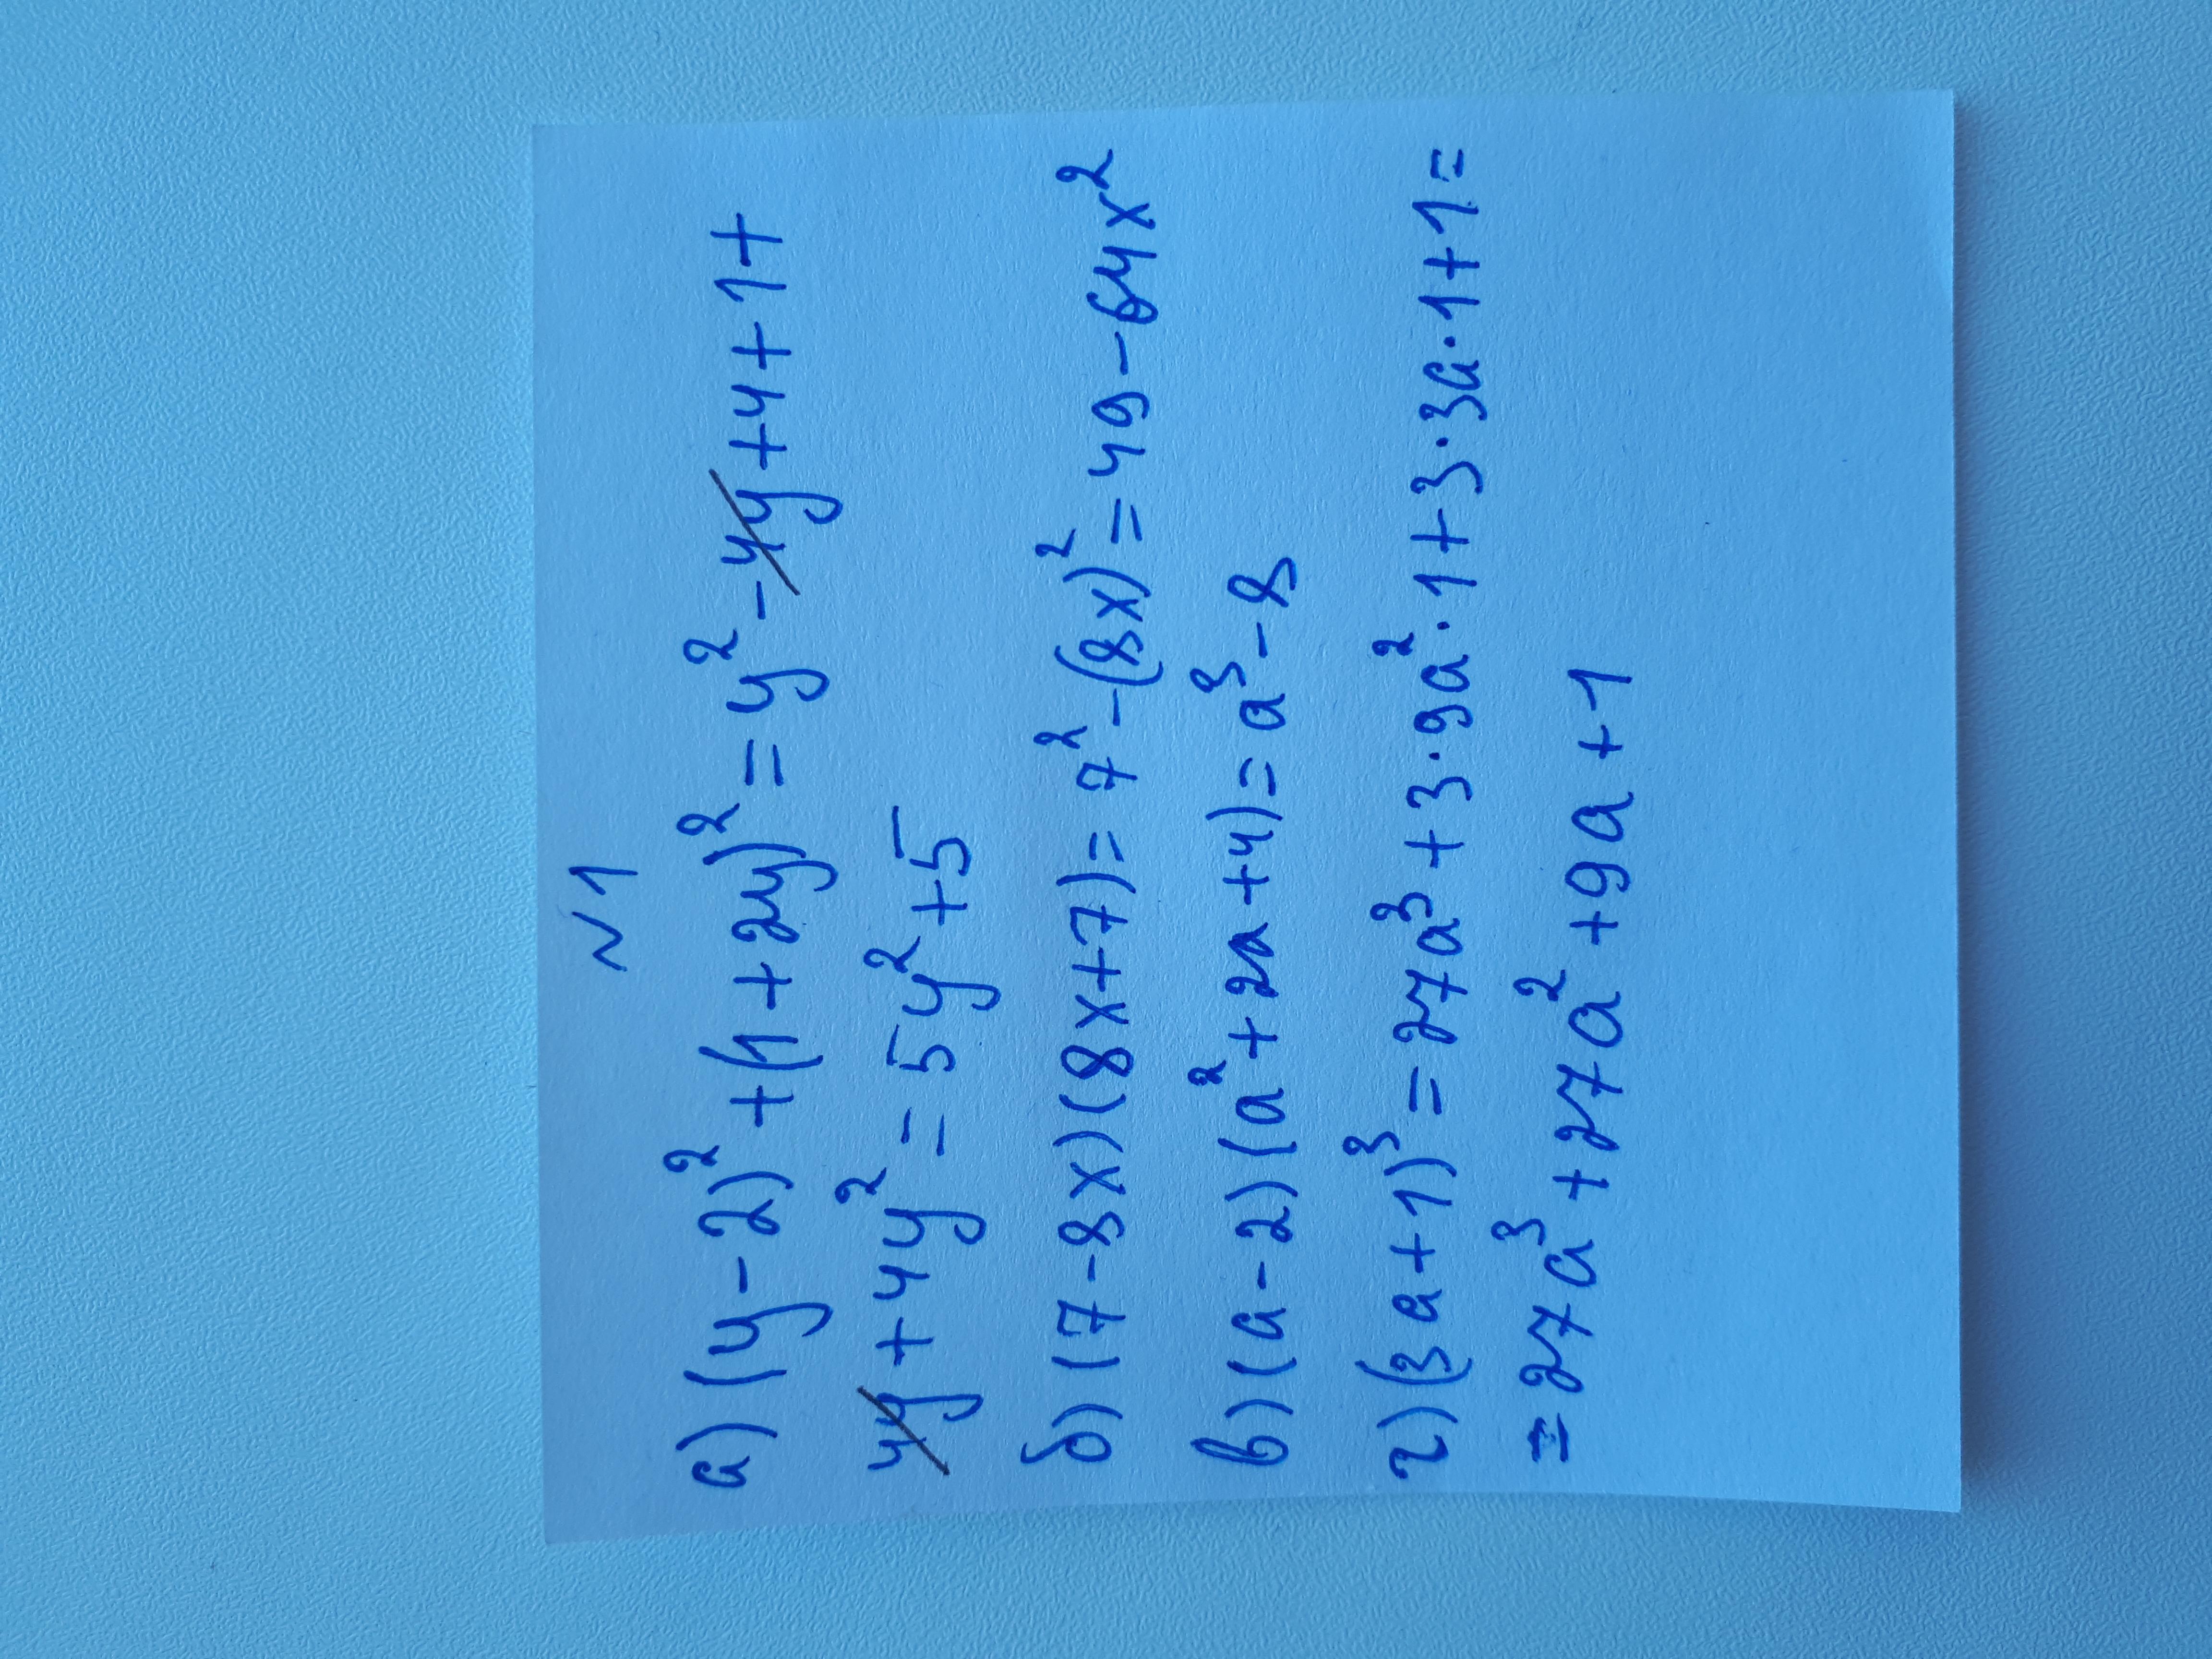 N1
а) (y-2)² + (1+2y)² = y² - 4y + 4 + 1 +
4y + 4y² = 5y² + 5
б) (7-8x)(8x+7) = 7² - (8x)² = 49 - 64x²
в) (a-2)(a²+2a+4) = a³ - 8
г) (3a+1)³ = 27a³ + 3·9a²·1 + 3·3a·1 + 1 =
= 27a³ + 27a² + 9a + 1